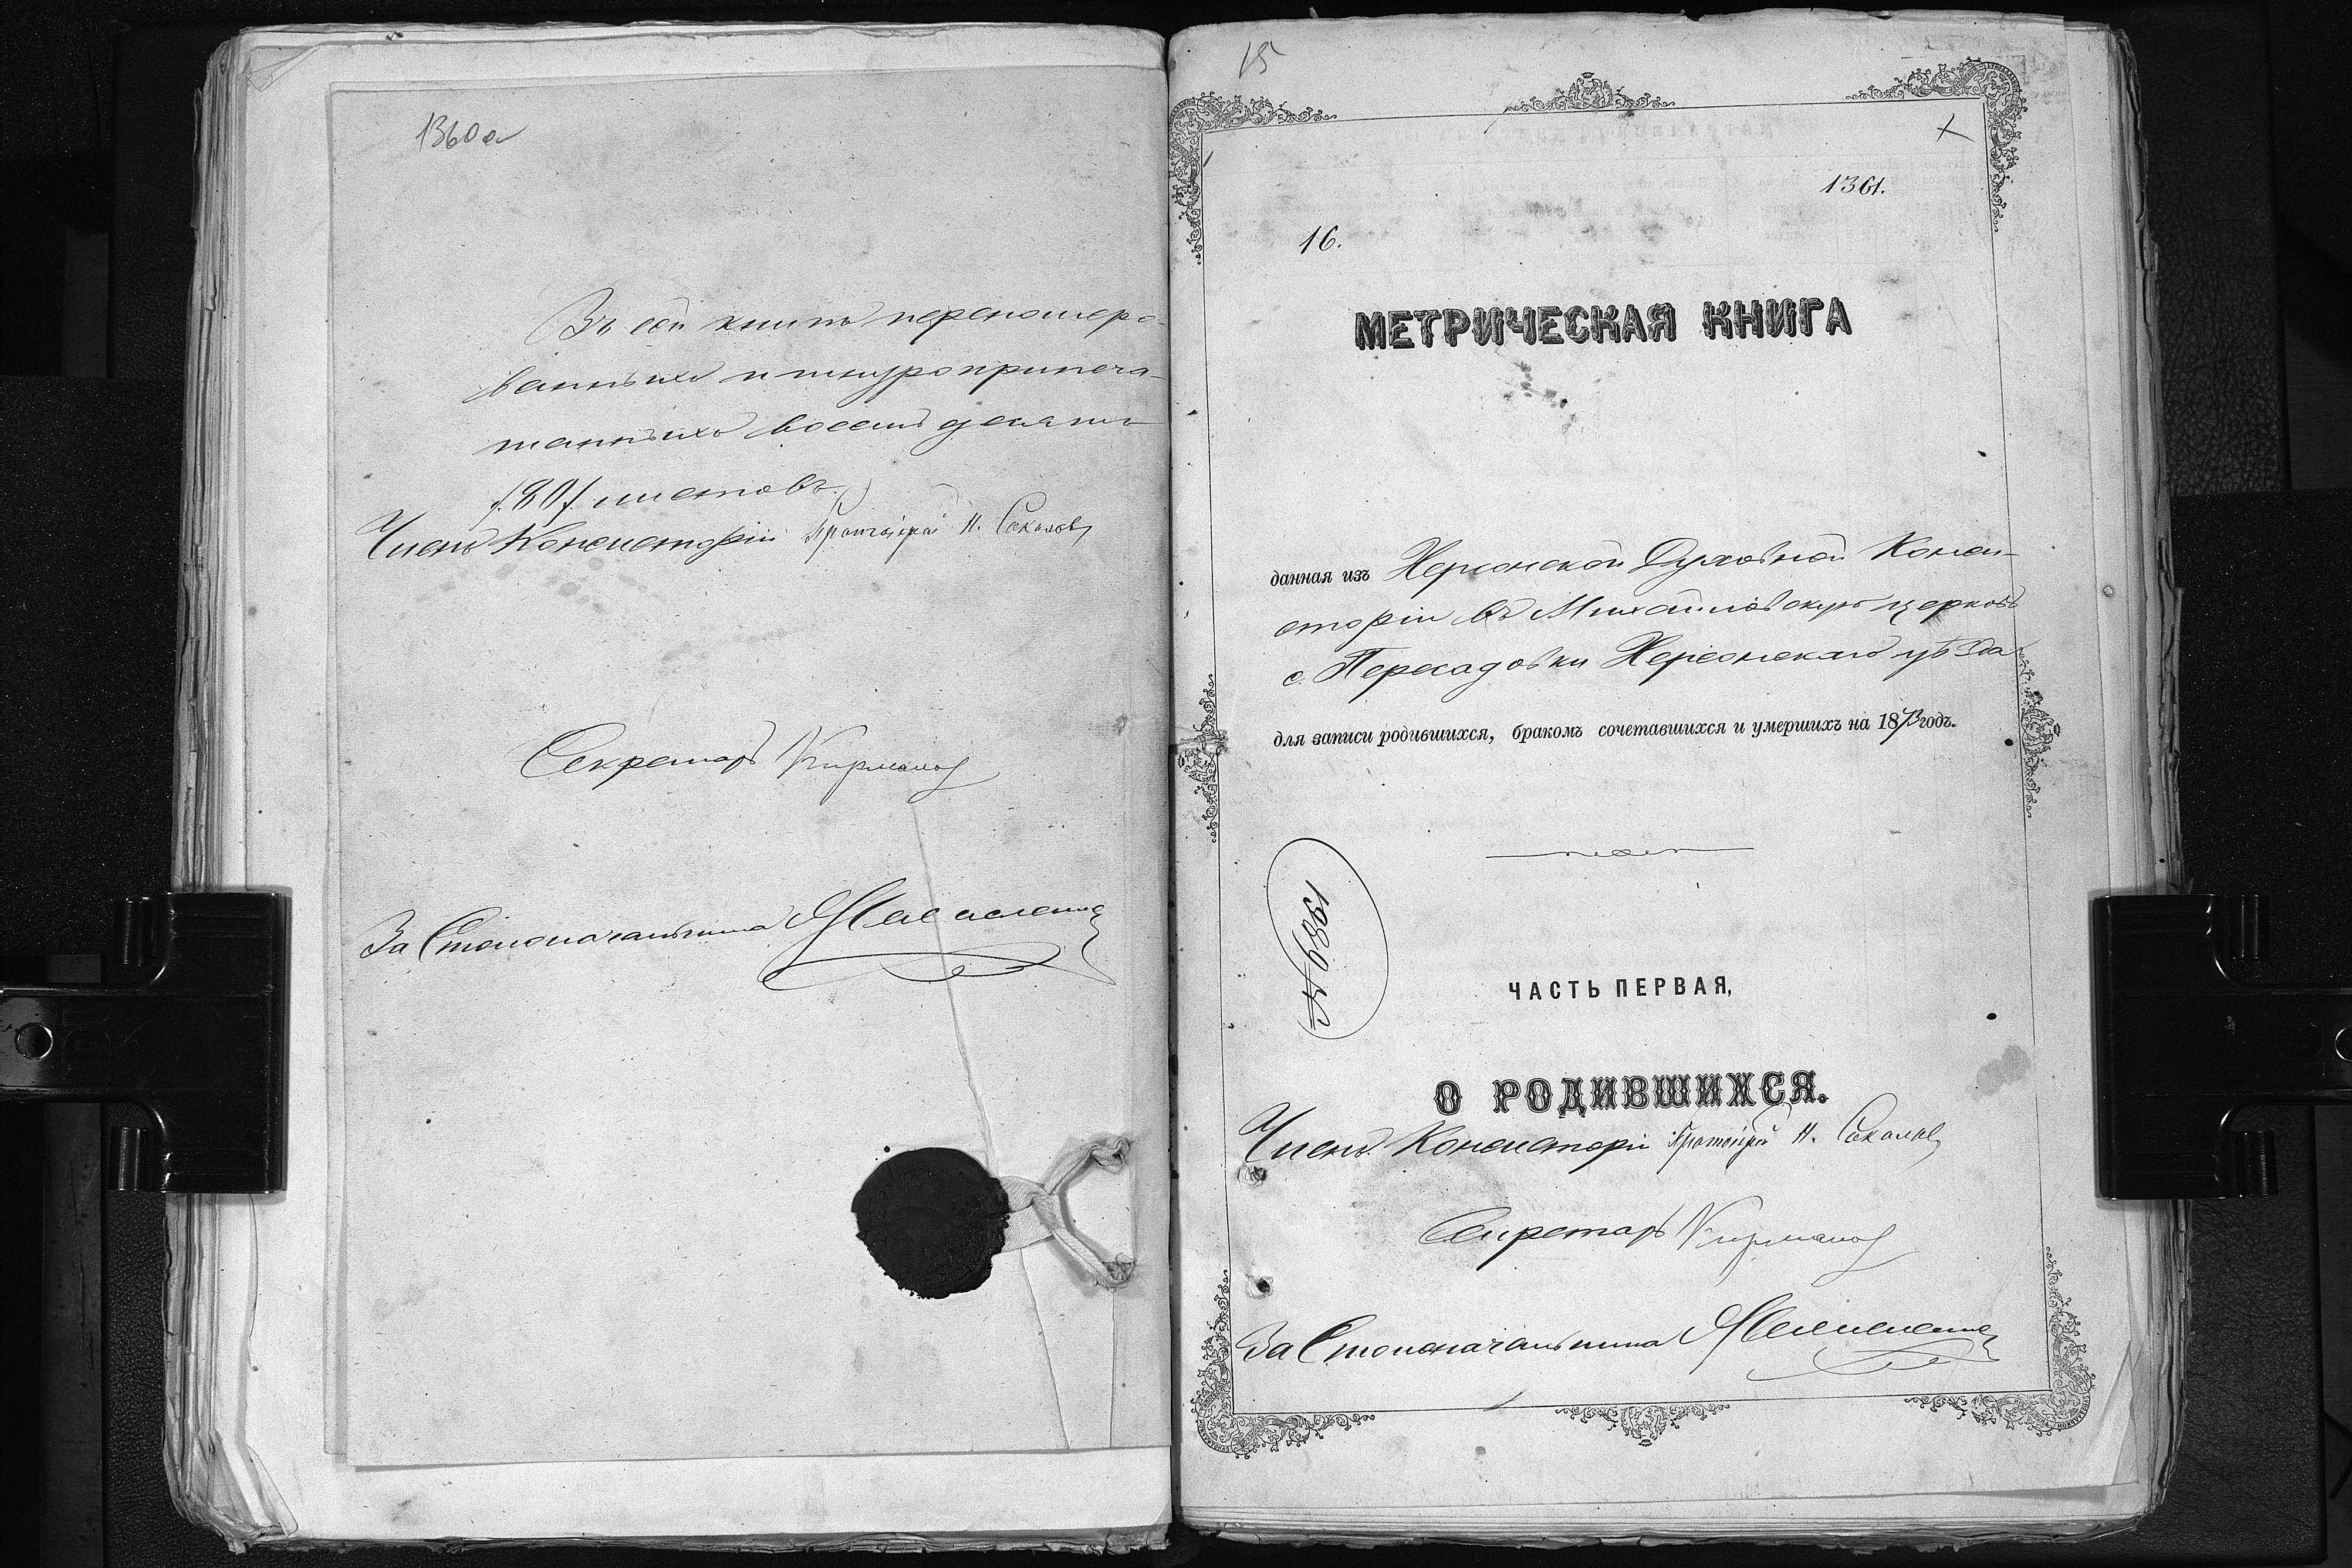 1360а
Въ сей книгѣ перенумеро-
ванныхъ и шнуроприпеча-
танныхъ восемьдесятъ
/80/ листовъ.
Членъ Консисторіи Протоіерей Н. Соколовъ
Секретарь
За Столоначальника
15
1361.
16.
МЕТРИЧЕСКАЯ КНИГА
данная изъ Херсонской Духовной Конси-
сторіи въ Михайловскую церковь
с. Пересадовки Херсонскаго уѣзда
для записи родившихся, бракомъ сочетавшихся и умершихъ на 1873 годъ.
№ 1389
ЧАСТЬ ПЕРВАЯ,
О РОДИВШИХСЯ.
Членъ Консисторіи Протоіерей Н. Соколовъ
Секретарь
За Столоначальника